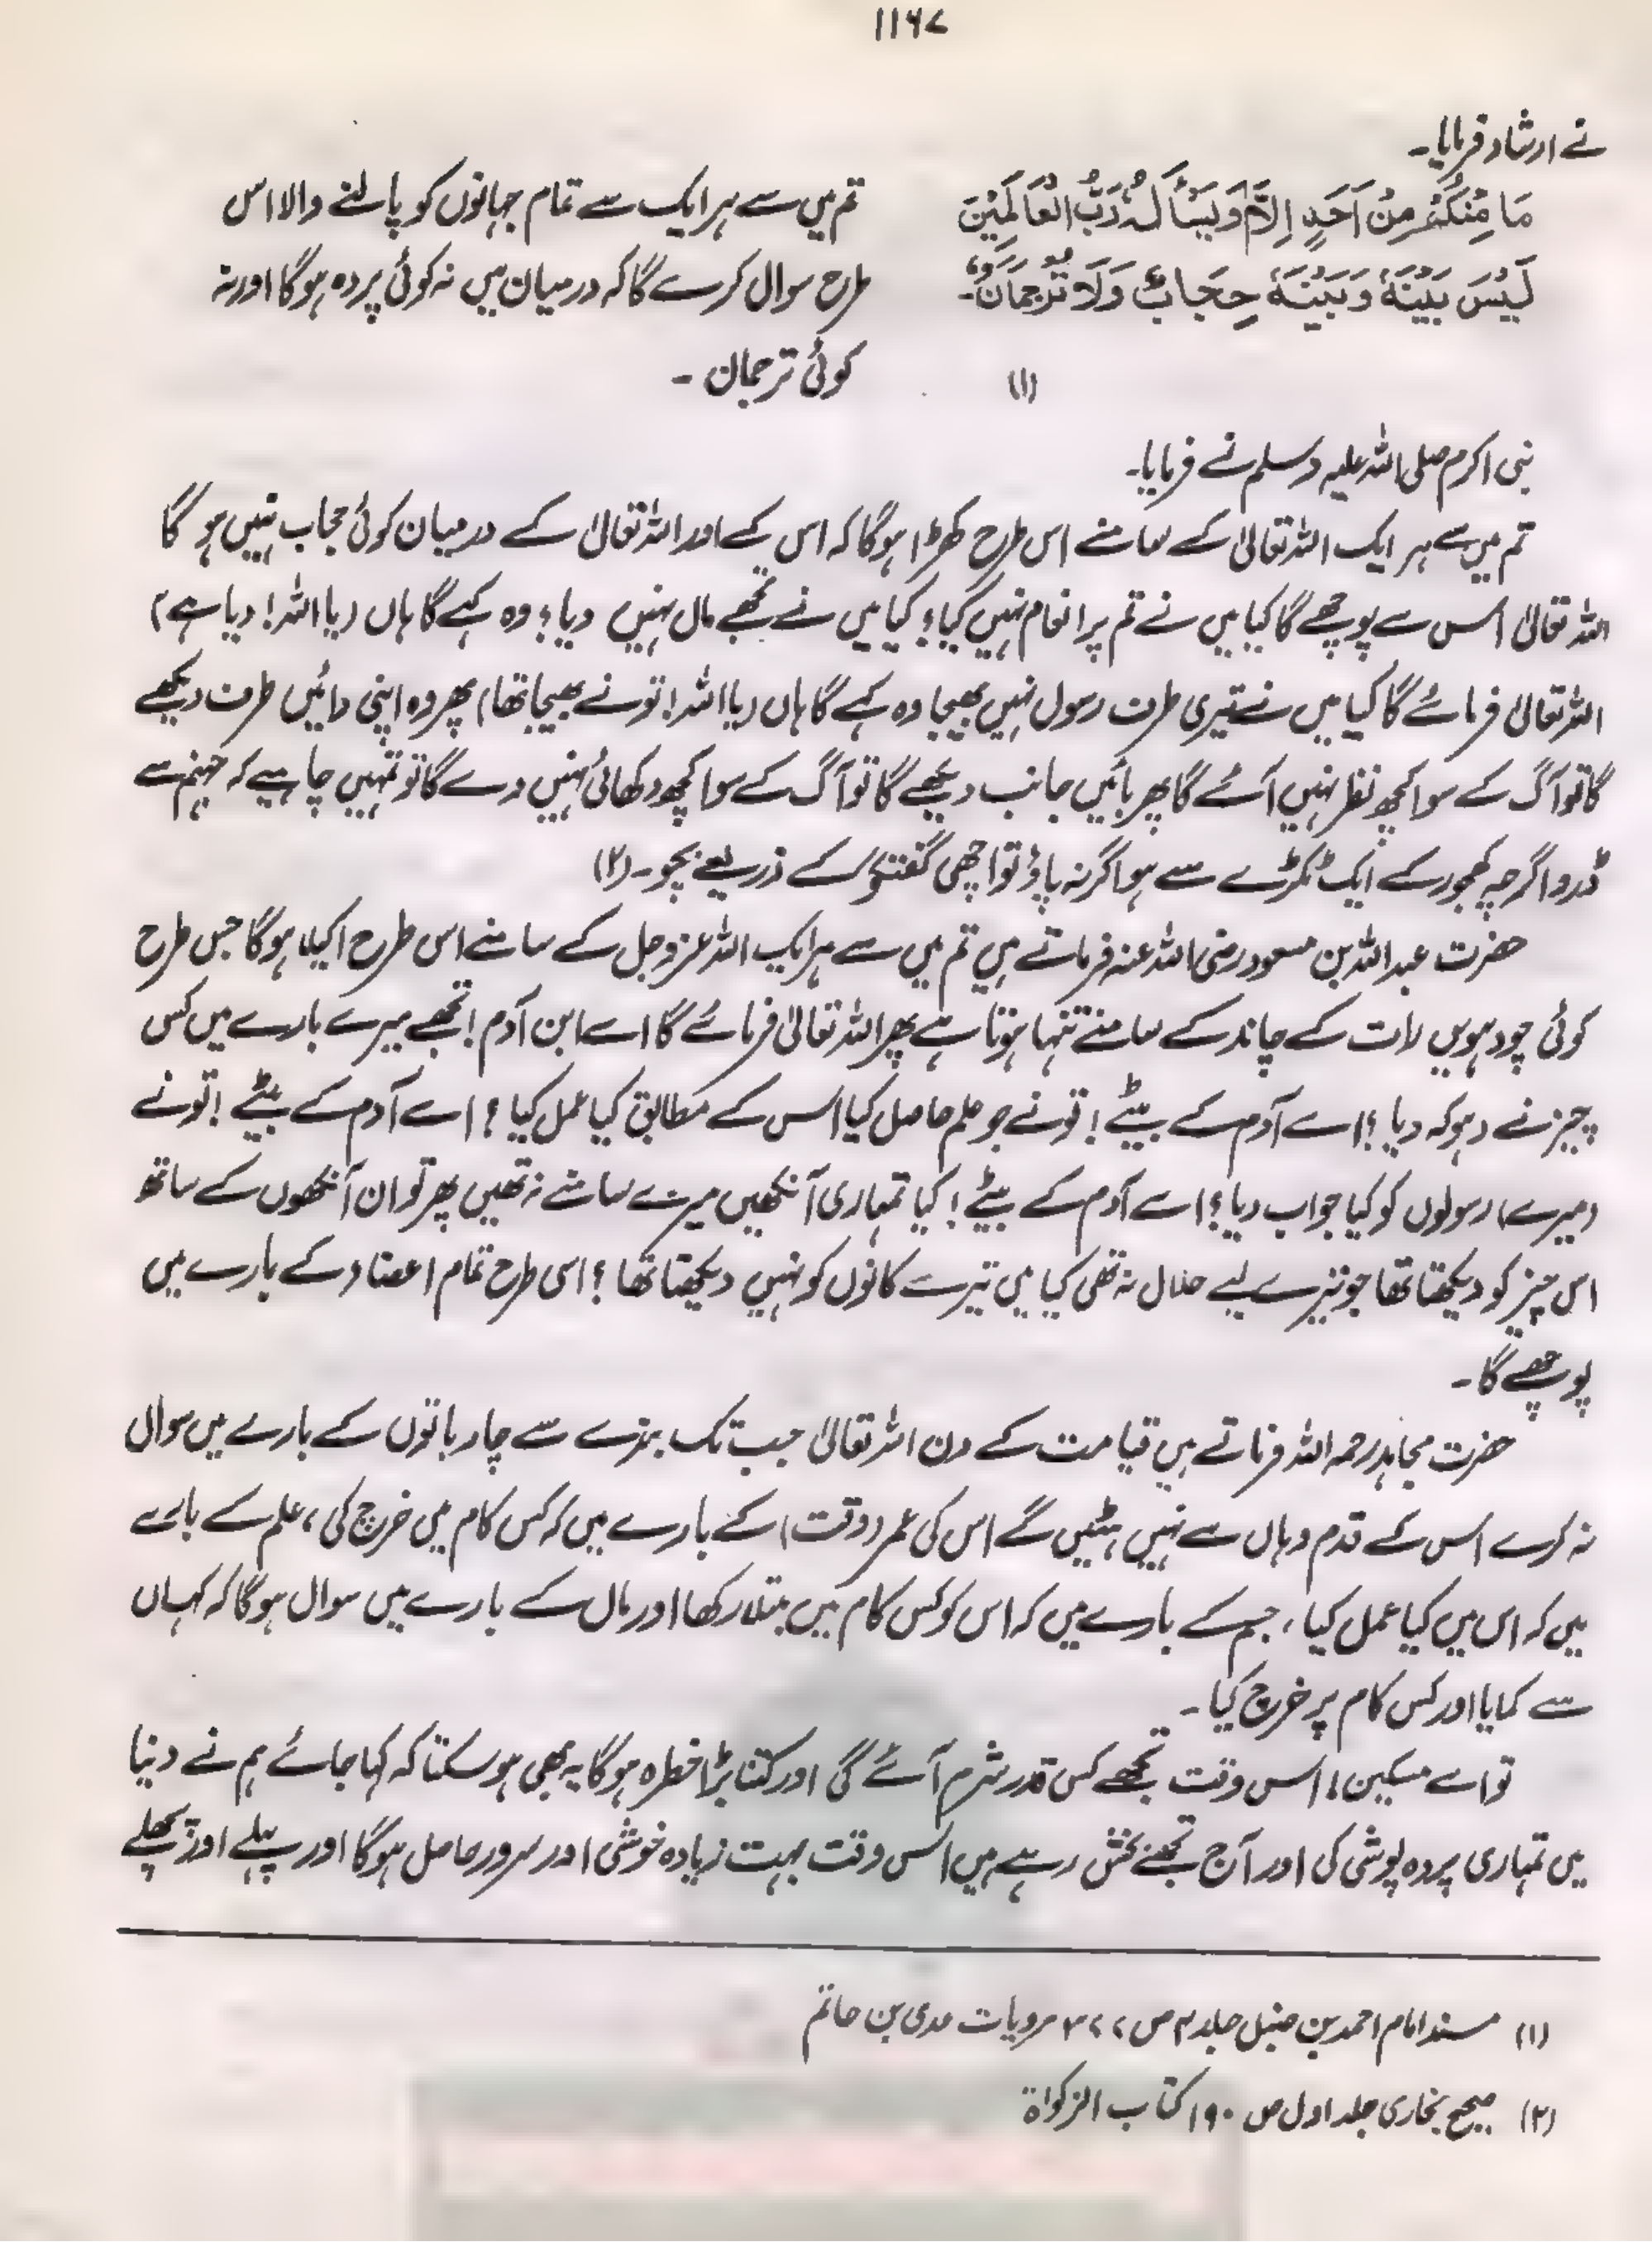 ۱۱۶۷
نے ارشاد فرمایا۔
مَا مِنْكُمْ مِنْ اَحَدٍ اِلَّا وَيَسْأَلُهُ رَبُّ الْعَالَمِيْنَ
لَيْسَ بَيْنَهُ وَبَيْنَهُ حِجَابٌ وَلَا تَرْجُمَانٌ۔
(۱)
تم میں سے ہر ایک سے تمام جہانوں کو پالنے والا اس
طرح سوال کرے گا کہ درمیان میں نہ کوئی پردہ ہوگا اور نہ
کوئی ترجمان ۔
نبی اکرم صلی اللہ علیہ وسلم نے فرمایا۔
تم میں سے ہر ایک اللہ تعالیٰ کے سامنے اس طرح کھڑا ہوگا کہ اس کے اور اللہ تعالیٰ کے درمیان کوئی حجاب نہیں ہو گا
اللہ تعالیٰ اس سے پوچھے گا کیا میں نے تم پر انعام نہیں کیا؟ کیا میں نے تجھے مال نہیں دیا؟ وہ کہے گا ہاں (یا اللہ! دیا ہے)
اللہ تعالیٰ فرمائے گا کیا میں نے تیری طرف رسول نہیں بھیجا وہ کہے گا ہاں (یا اللہ! تو نے بھیجا تھا) پھر وہ اپنی دائیں طرف دیکھے
گا تو آگ کے سوا کچھ نظر نہیں آئے گا پھر بائیں جانب دیکھے گا تو آگ کے سوا کچھ دکھائی نہیں دے گا تو تمہیں چاہیے کہ جہنم سے
ڈرو اگرچہ کھجور کے ایک ٹکڑے سے ہو اگر نہ پاؤ تو اچھی گفتگو کے ذریعے بچو۔ (۲)
حضرت عبداللہ بن مسعود رضی اللہ عنہ فرماتے ہیں تم میں سے ہر ایک اللہ عزوجل کے سامنے اس طرح اکیلا ہوگا جس طرح
کوئی چودہویں رات کے چاند کے سامنے تنہا ہوتا ہے پھر اللہ تعالیٰ فرمائے گا اے ابن آدم! تجھے میرے بارے میں کس
چیز نے دہوکہ دیا ؟ اے آدم کے بیٹے! تو نے جو علم حاصل کیا اس کے مطابق کیا عمل کیا؟ اے آدم کے بیٹے! تو نے
(میرے) رسولوں کو کیا جواب دیا؟ اے آدم کے بیٹے! کیا تمہاری آنکھیں میرے سامنے نہ تھیں پھر تو ان آنکھوں کے ساتھ
اس چیز کو دیکھتا تھا جو تیرے لیے حلال نہ تھی کیا میں تیرے کانوں کو نہیں دیکھتا تھا ؟ اسی طرح تمام اعضاء کے بارے میں
پوچھے گا۔
حضرت مجاہد رحمہ اللہ فرماتے ہیں قیامت کے دن اللہ تعالیٰ جب تک بندے سے چار باتوں کے بارے میں سوال
نہ کرے اس کے قدم وہاں سے نہیں ہٹیں گے اس کی عمر (وقت) کے بارے میں کہ کس کام میں خرچ کی، علم کے بارے
میں کہ اس میں کیا عمل کیا، جسم کے بارے میں کہ اس کو کس کام میں مبتلا رکھا اور مال کے بارے میں سوال ہوگا کہ کہاں
سے کمایا اور کس کام پر خرچ کیا ۔
تو اے مسکین! اس وقت تجھے کس قدر شرم آئے گی اور کتنا بڑا خطرہ ہوگا یہ بھی ہو سکتا کہ کہا جائے ہم نے دنیا
میں تمہاری پردہ پوشی کی اور آج تجھے بخش رہے ہیں اس وقت بہت زیادہ خوشی اور سرور حاصل ہوگا اور پہلے اور پچھلے
(۱) مسند امام احمد بن حنبل جلد ۴ ص ۳۷۷ مرویات عدی بن حاتم
(۲) صحیح بخاری جلد اول ص ۱۹۰ کتاب الزکواۃ